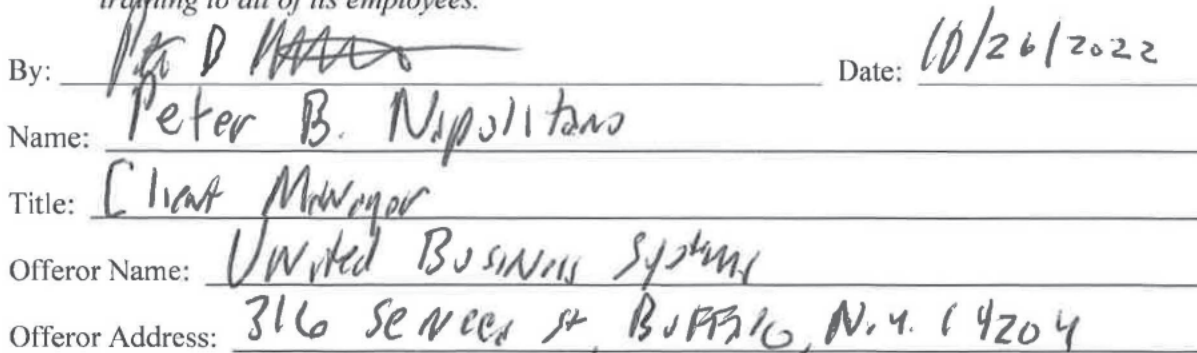 training to all of its employees.
By: Date: 10/26/2022
Name: Peter B. Napolitano
Title: Client Manager
Offeror Name: United Business Systems
Offeror Address: 316 Seneca St, Buffalo, N.Y. 14204